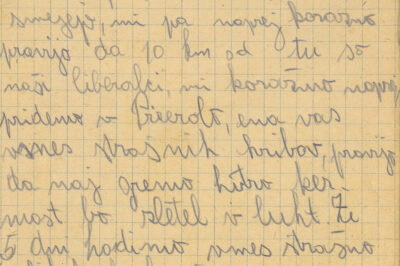 smejejo, mi pa naprej koražno
pravijo da 10 km od tu so
naši liberalci, mi koražno naprej
pridemo v Prerolt, ena vas
vmes strašnih hribov, pravijo
da naj gremo hitro ker
most bo zletel v luht. Že
5 dni hodimo vmes strašno